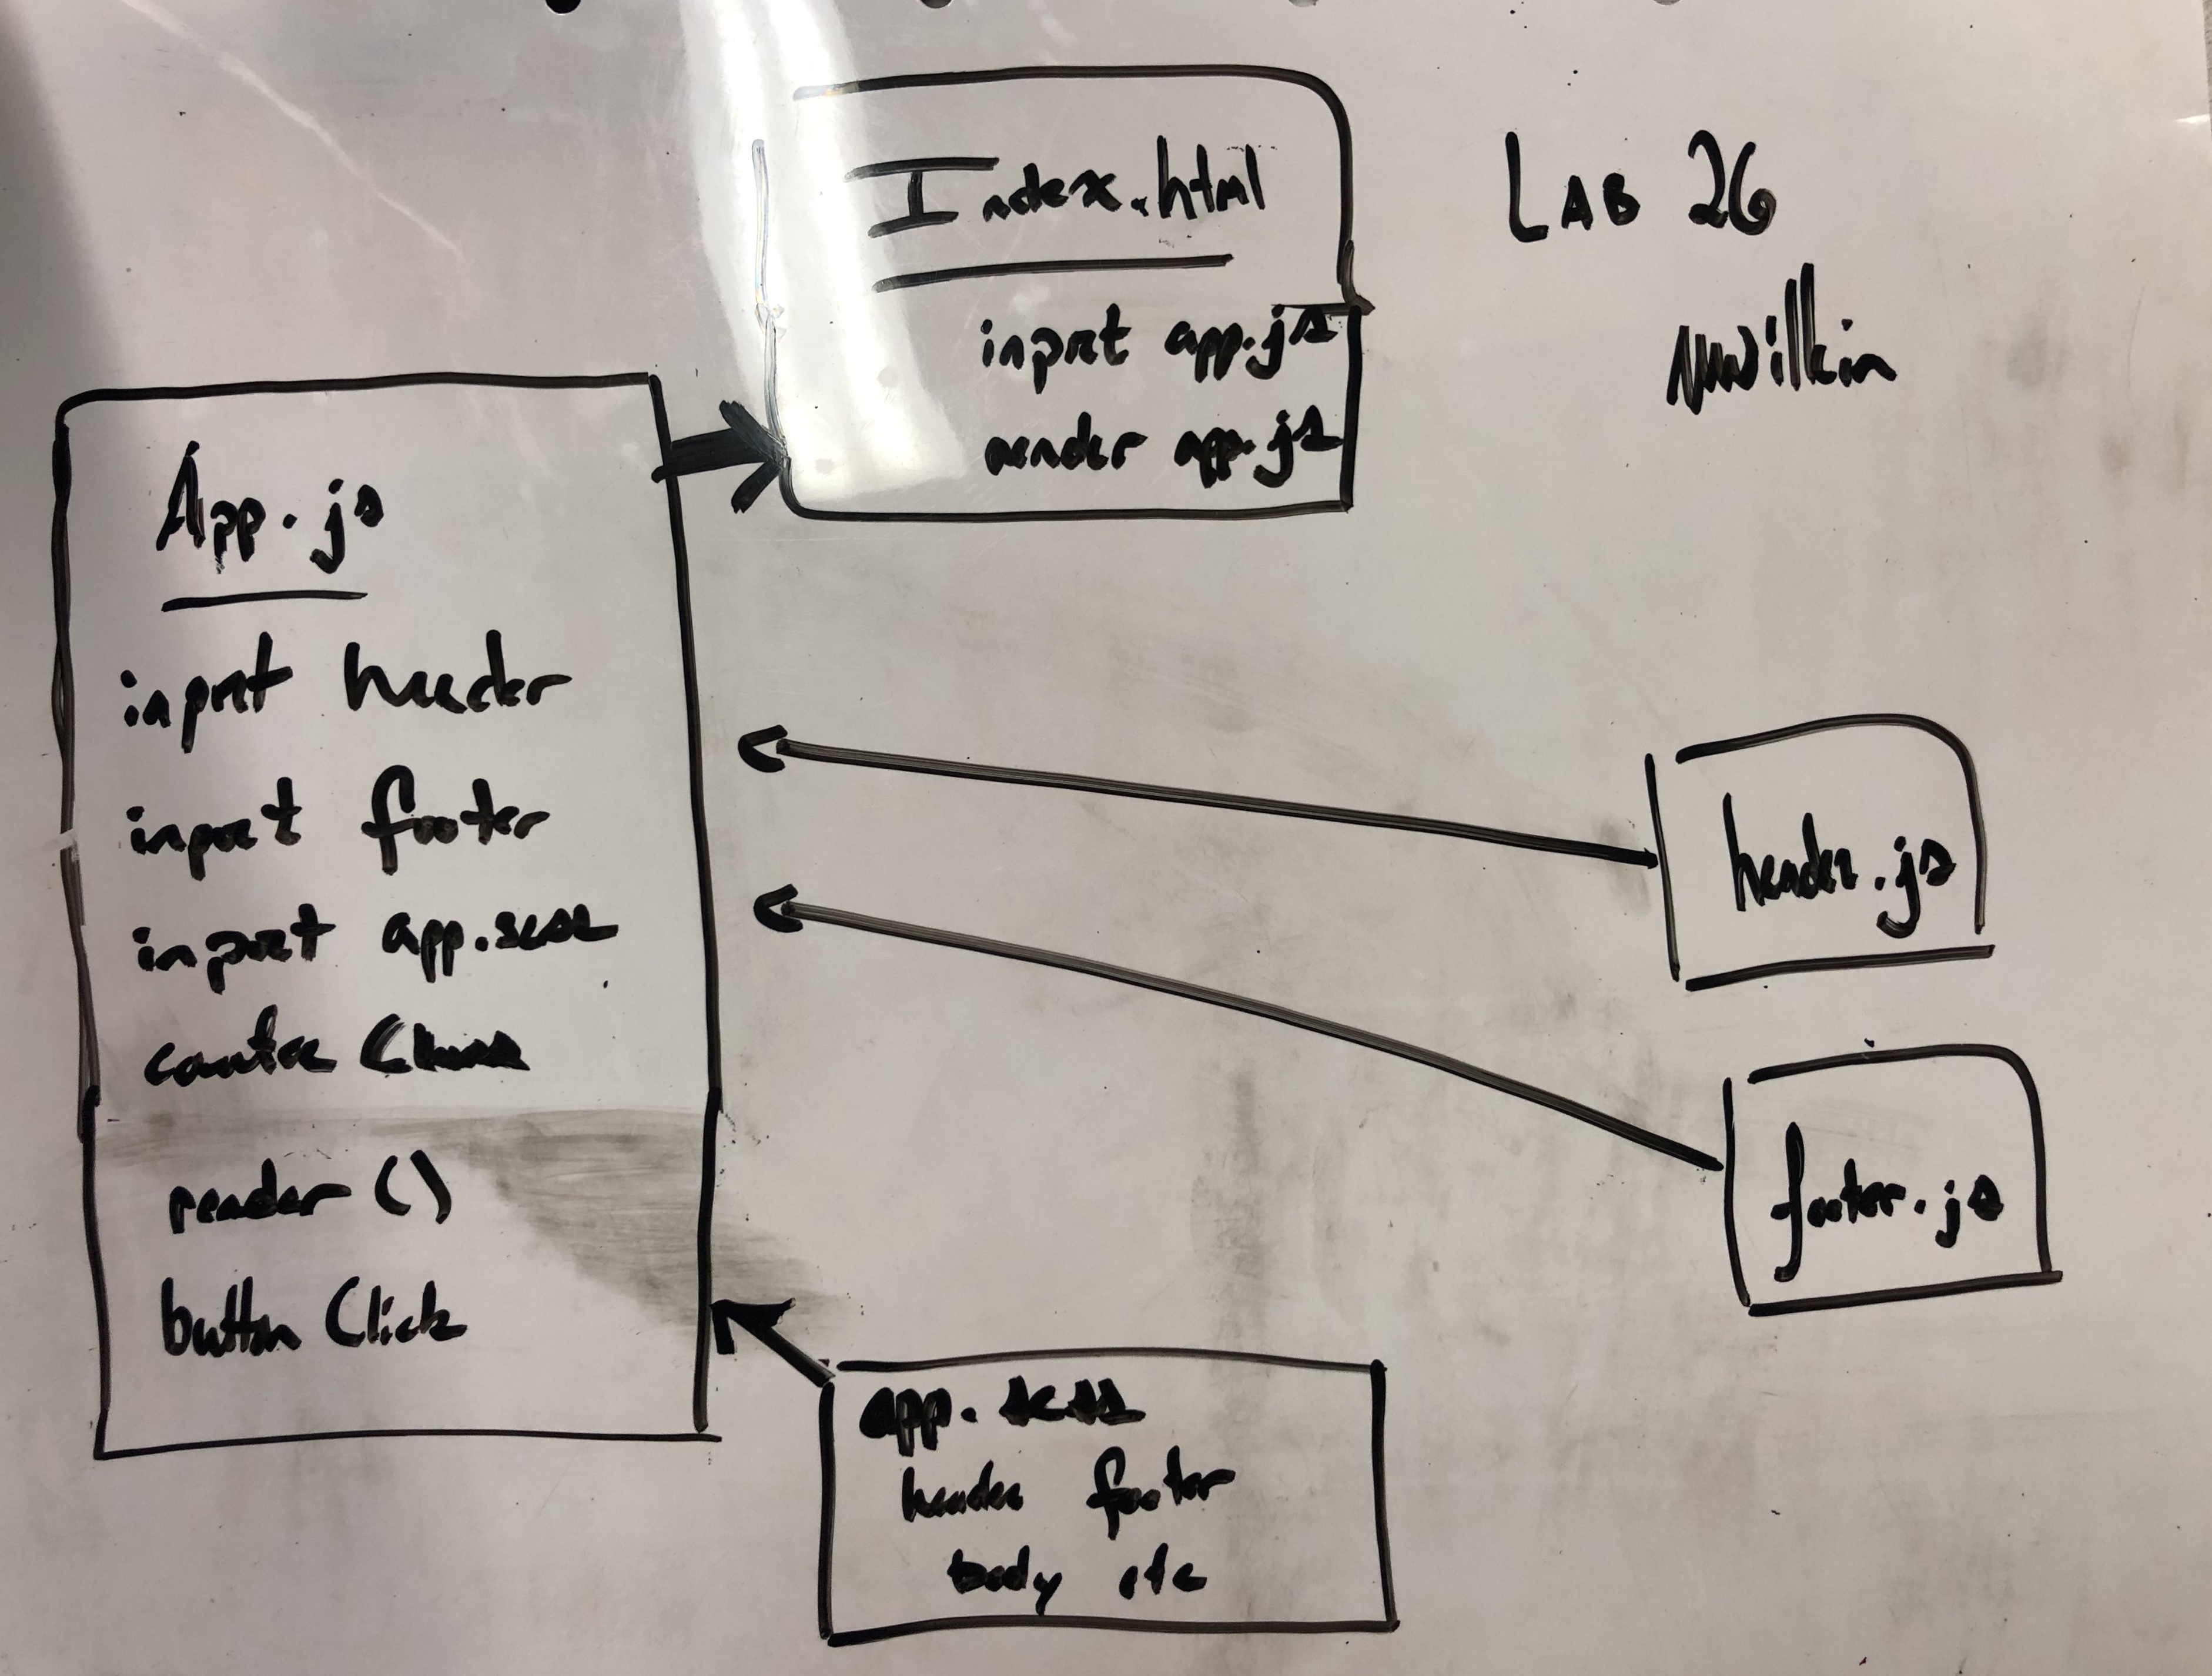 Index.html
input app.js
render app.js
LAB 26
App.js
input header
input footer
input app.scss
counter Class
render ()
button Click
header.js
footer.js
app.scss
header footer
body etc